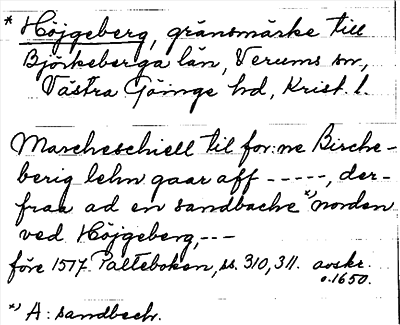 * Höjgeberg, gränsmärke till
Björkeberga län, Verums sn,
Västra Göinge hd, Krist. l.
Marcheschiell til for:ne Birche-
berig lehn gaar aff -----, der-
fraa ad en sandbacke *) norden
ved Höjgeberg, ---
före 1517. Palteboken, ss. 310, 311. avskr.
c. 1650.
*) A: sandbech.